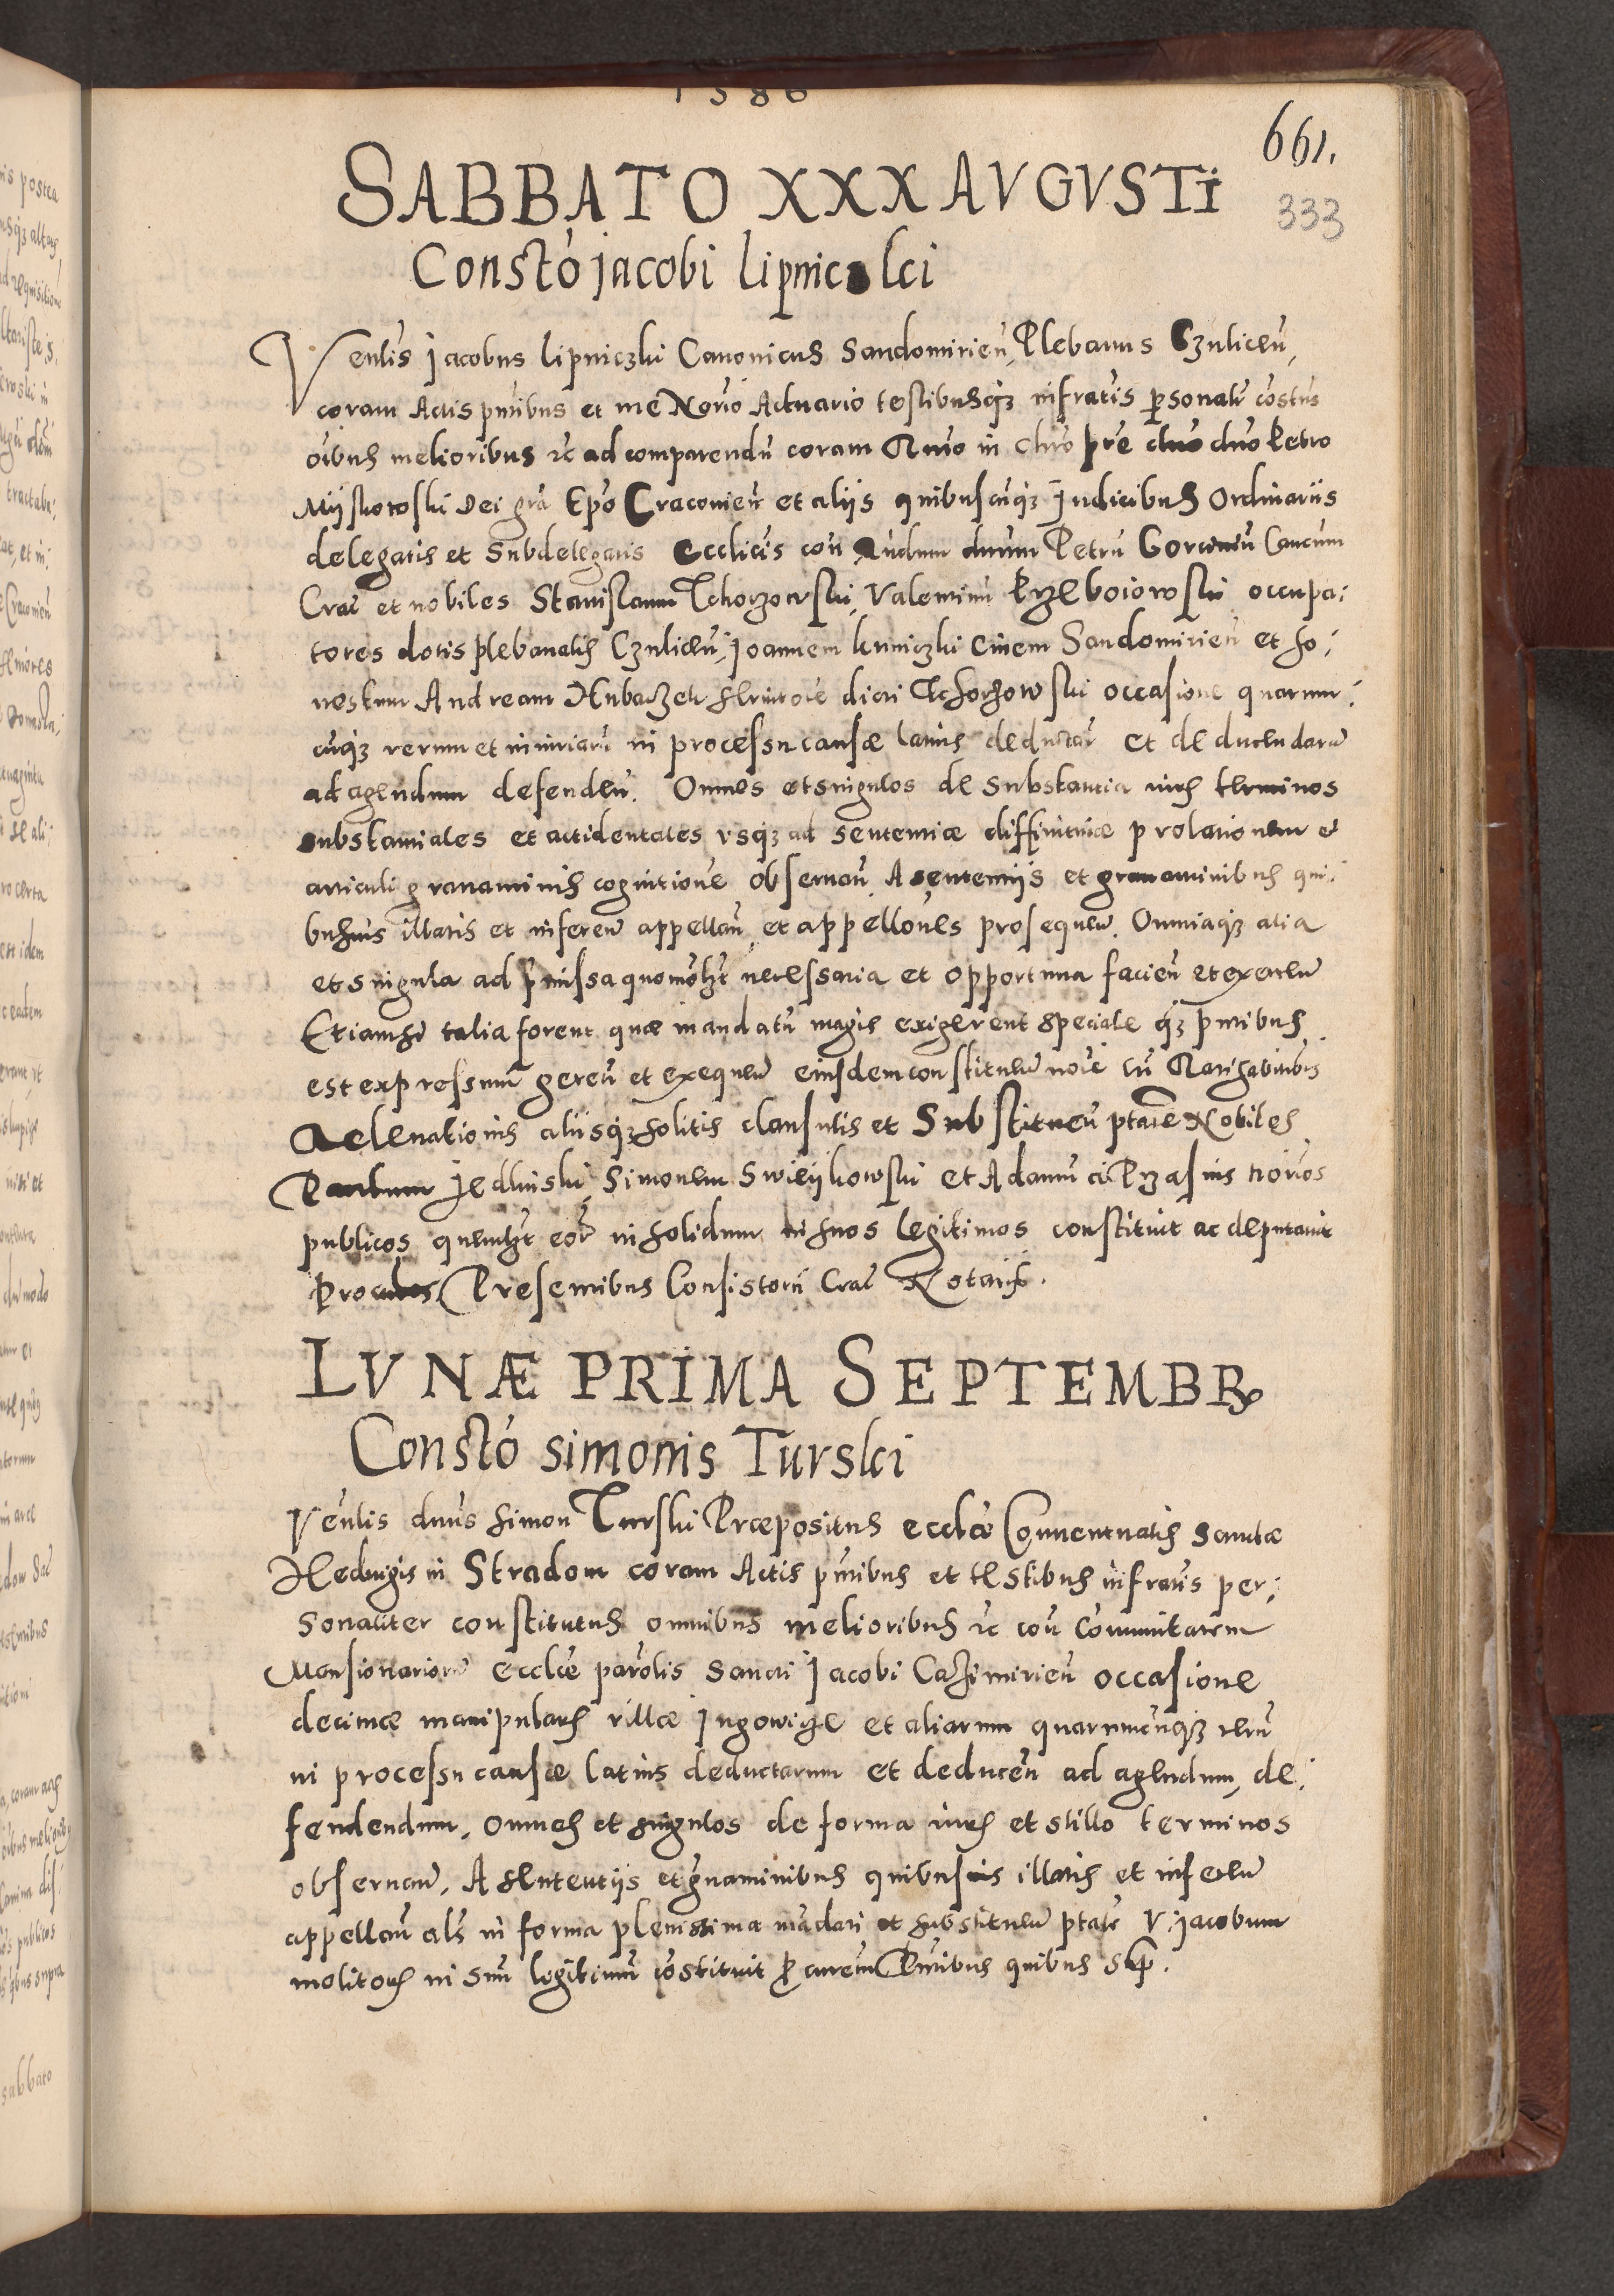 1586
661.
333
SABBATO XXX AVGVSTi
Constó jacobi Lipniczlci
Venlis Jacobus Lipniczki Canonicus Sandomirien̄, Plebanus Czulicen̄,
coram Actis pn̄tibus et me Nor̄io Actuario testibusq̧ infratis personalr̄ cōstus
oībus melioribus ꝛc ad comparendū coram Rn̄do in Chr̄o pr̄e dno dno Petro
Miiskowski Dei gr̄a Ep̄o Cracovien̄ et aliis quibuscūq̧ Judicibus Ordinariis
delegatis et Subdelegatis Ecclicis con̄ Rndum dnum Petrū Cancum
Crac̄ et nobiles Stanislaum Tchorzowski, Valentinū Krzeboiowski occupa:
tores dotis plebanalis Czulicen̄, Joannem kuniczki Civem Sandomirien̄ et ho:
nestum Andream dicti Tchorzowski occasione quarum:
cūq̧ rerum et iniuriarū in processu causæ latius deductar̄ et deducendarū
ad agendum defenden̄. Omnes et singulos de substantia iuris terminos
substantiales et accidentales vsq̧ ad sententiæ diffinitiuæ prolationem et
articuli grauaminis cognitione obseruan̄ A sententiis et grauaminibus qui:
busuis illatis et inferen̄ appellan̄, et appellōnes prosequen̄. Omniaq̧ alia
et singula ad p̄missa quomōlzt necessaria et opportuna facien̄ et exercen̄
Etiamsi talia forent quæ mandatū magis exigerent speciale q̧ pn̄tibus
est expressum geren̄ et exequen̄ eiusdem constituen̄ noīe cū Ratihabitiōis
Releuationis aliisq̧ solitis clausulis et Substituen̄ ptāte Nobiles
Paulum Jedlinski Simonem Swieykowski et Adamū à Przasnis noriōs
publicos quemlzt eor̄ in solidum in suos legitimos constituit ac deputauit
Procubes. Presentibus Consistorii Crac̄ Notariis.
LVNÆ PRIMA SEPTEMBR
Constó simonis Turslci
Venlis dnus Simon Turski Præpositus ecclæ Conuentualis Sanctæ
Heduigis in Stradom coram Actis pn̄tibus et testibus infratis per:
sonaliter constitutus omnibus melioribus ꝛc con̄ Comunitatem
Mansionariorū ecclæ parōlis Sancti Jacobi Cazimirien̄ occasione
decimæ manipularis villæ Jugowicze et aliarum quarumcūq̧ rerū
in processu causæ latius deductarum et deducen̄ ad agendum, de:
fendendum, omnes et singulos de forma iuris et stillo terminos
obseruan̄, A sententiis et grauaminibus quibusuis illatis et inferen̄
appellan̄ als̄ in forma plenissima mādati et substituen̄ ptāte V. Jacobum
molitoris in suū legitimū cōstituit Pn̄tibus quibus sup̄.